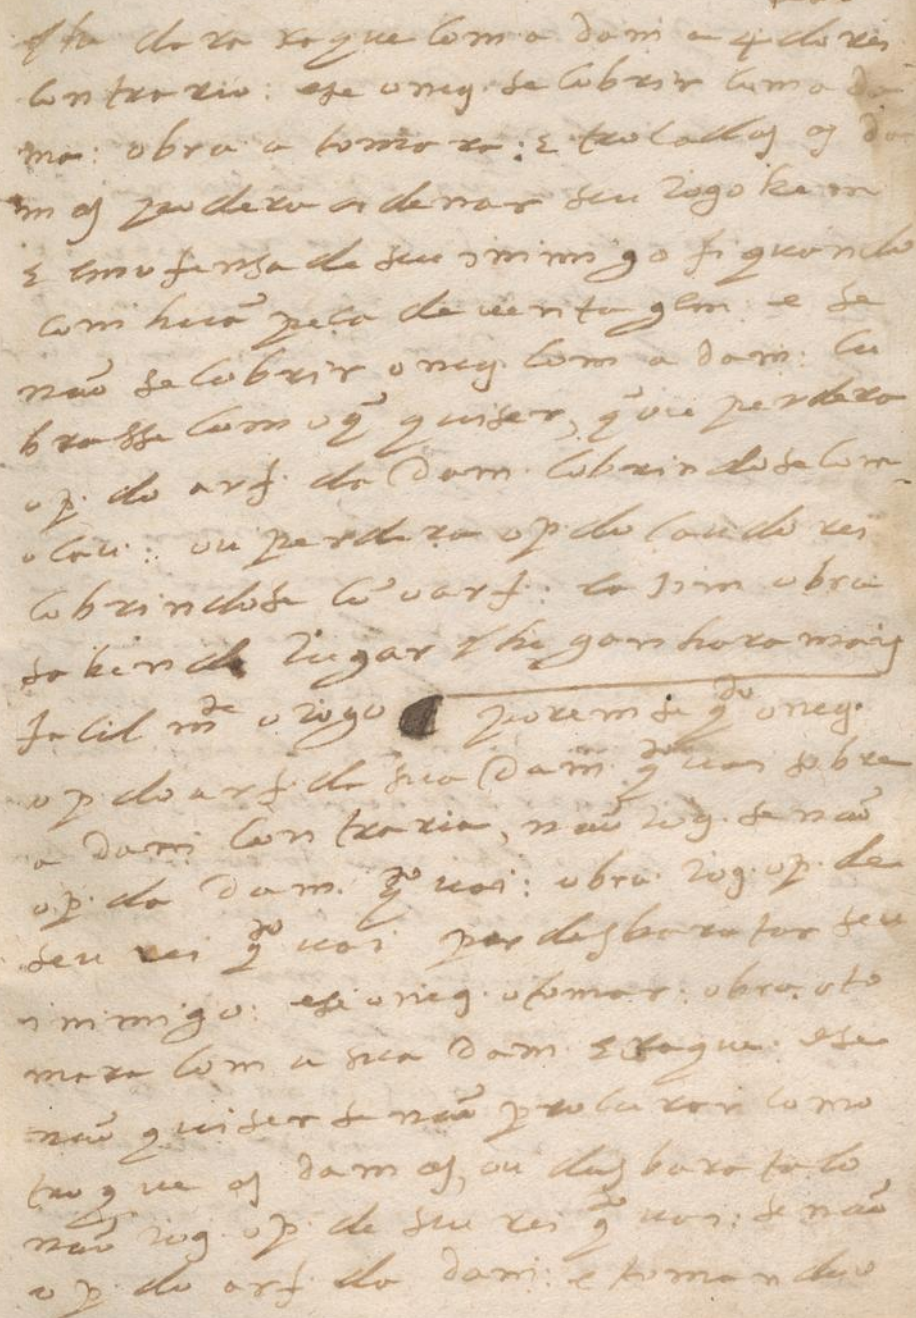 lhe dara xaque com a dam a 4 do rei
contrario: ese oneg. se cobrir com a da
ma: obra. a tomara: E trocadas as da
mas podera ordenar seu iogo bem
E em ofensa de seu inimigo fiquando
com huã peca de uentagem e se
não se cobrir oneg. com a dam: cu
brasse com oq̃ quiser, q̃ ou perdera
op. do arf. da Dam. cobrindose com
o cau: ou perdera op do cau do rei
cobrindose cõ o arf. e assim obra
sabendo iugar lhe ganhara mais
facil m.de o iogo porem se q.do oneg.
op. do arf. da sua Dam. q.do uai sobre
a dam contraria, não iog. se não
op. da Dam. q.do uai: obra. iog. op. de
seu rei q.do uai por desbaratar seu
inimigo: ese oneg. o tomar: obra. o to
mara com a sua Dam. E xaque. ese
não quiser se não procurar como
troque as damas, ou desbaratalo
não iog. op. de seu rei q.do uai: se não
op. do arf. da dam: e tomandoo